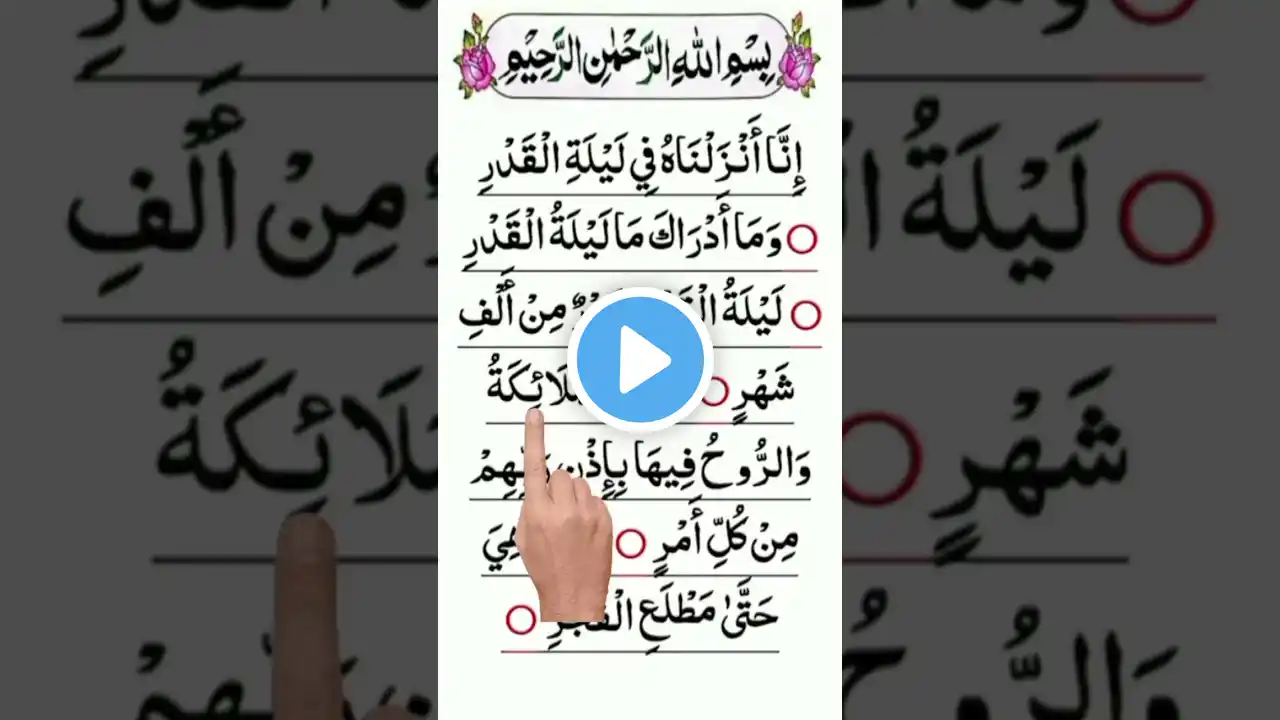 بِسْمِ اللهِ الرَّحْمٰنِ الرَّحِيْمِ
إِنَّا أَنْزَلْنَاهُ فِي لَيْلَةِ الْقَدْرِ
وَمَا أَدْرَاكَ مَا لَيْلَةُ الْقَدْرِ
لَيْلَةُ مِنْ أَلْفِ
شَهْرٍ
وَالرُّوحُ فِيهَا بِإِذْنِ رَبِّهِمْ
مِنْ كُلِّ أَمْرٍ هِيَ
حَتَّىٰ مَطْلَعِ الْفَجْرِ